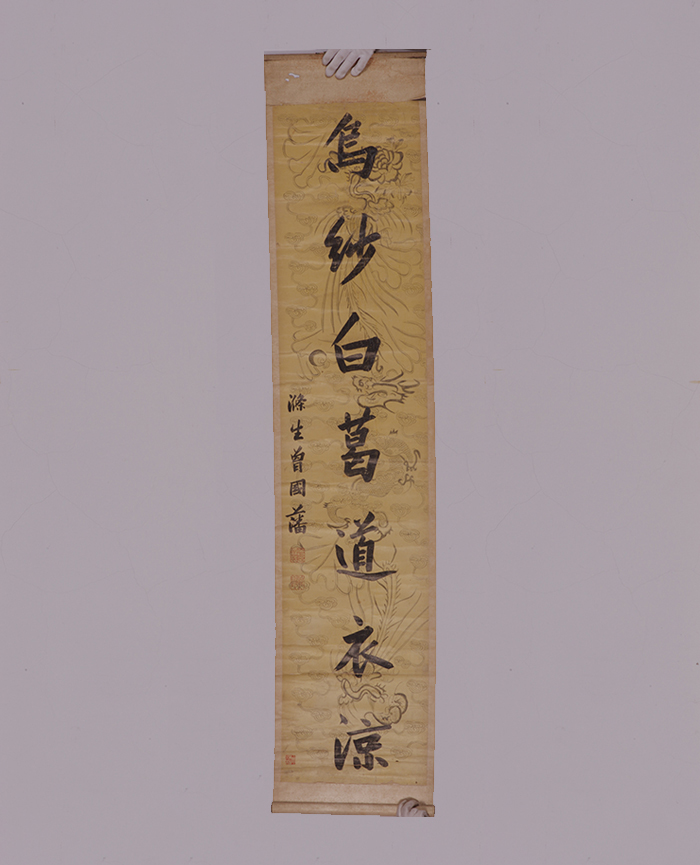 烏紗白葛道衣涼
滌生曾國藩